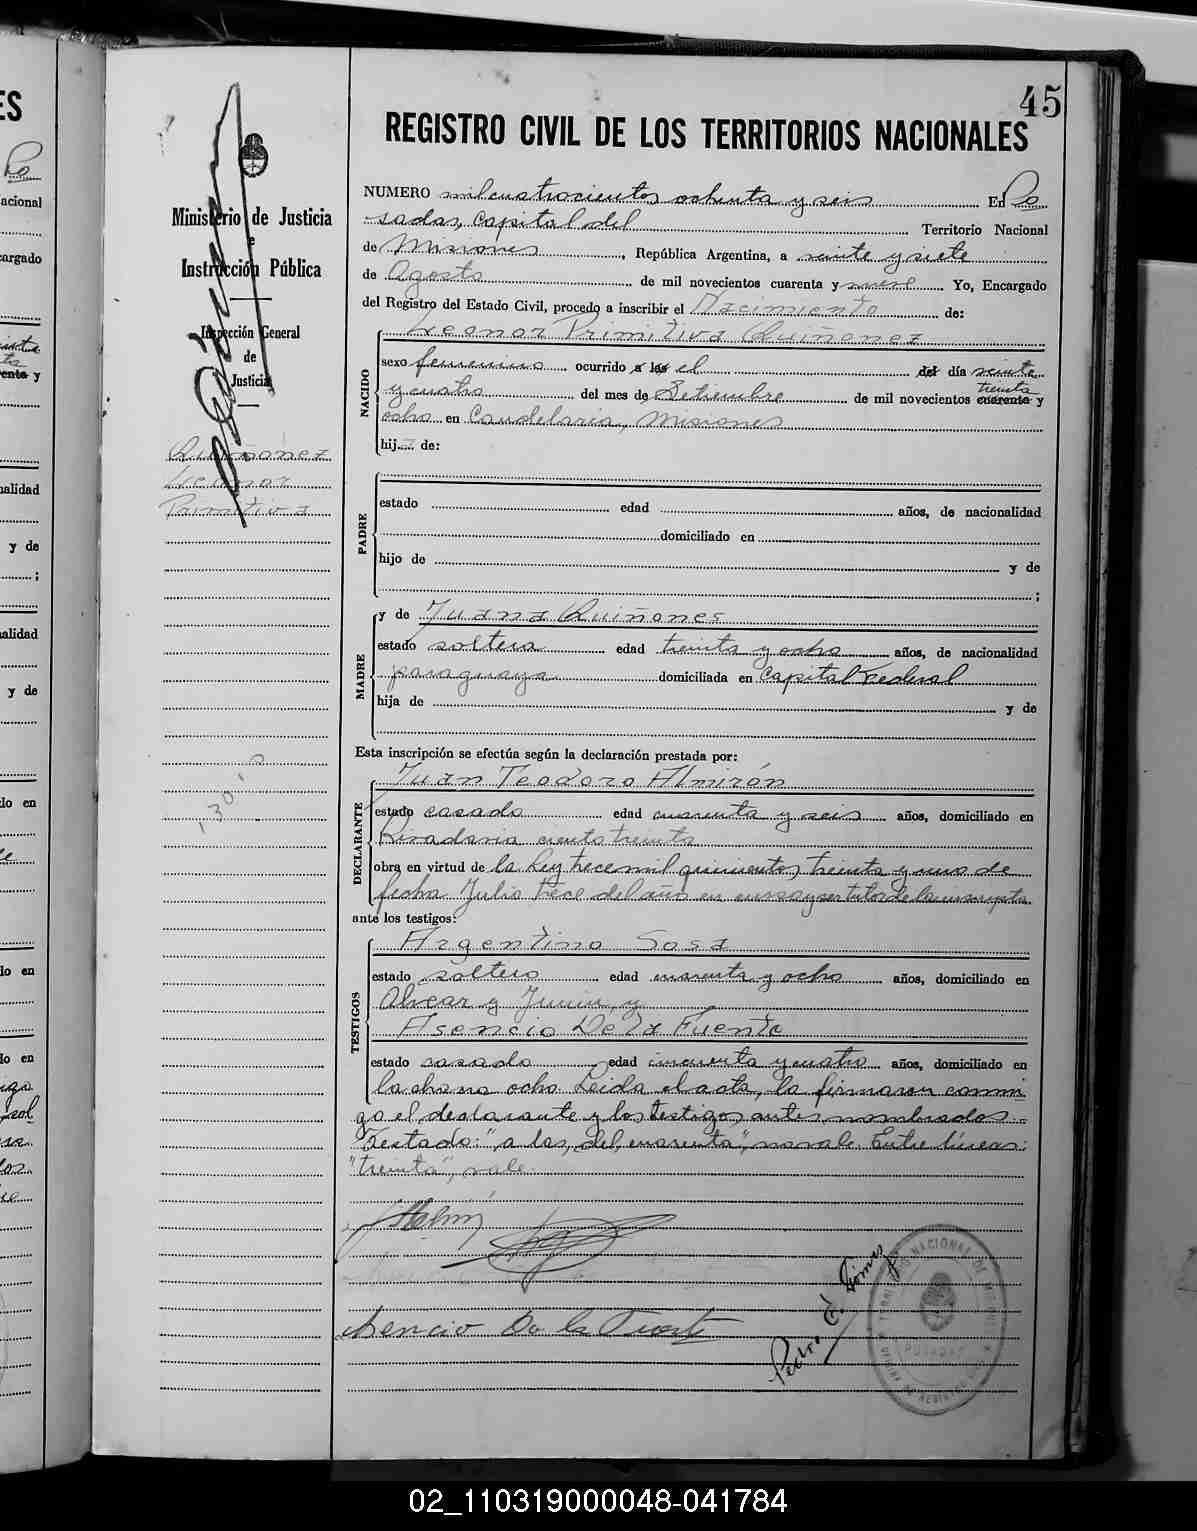 45
REGISTRO CIVIL DE LOS TERRITORIOS NACIONALES
Ministerio de Justicia
e
Instrucción Pública
Inspección General
de
Justicia
Quiñonez
Leonor
Primitiva
NUMERO mil cuatrocientos ochenta y seis En Po
sadas, capital del Territorio Nacional
de Misiones, República Argentina, a veinte y siete
de Agosto de mil novecientos cuarenta y nueve Yo, Encargado
del Registro del Estado Civil, procedo a inscribir el Nacimiento de:
Leonor Primitiva Quiñonez
NACIDO
sexo femenino ocurrido a las el del día veinte
y cuatro del mes de Setiembre de mil novecientos cuarenta treinta y
ocho en Candelaria, Misiones
hij.a de:
PADRE
estado edad años, de nacionalidad
domiciliado en
hijo de y de
;
MADRE
y de Juana Quiñones
estado soltera edad treinta y ocho años, de nacionalidad
paraguaya domiciliada en Capital Federal
hija de y de
Esta inscripción se efectúa según la declaración prestada por:
DECLARANTE
Juan Teodoro Almirón
estado casado edad cuarenta y seis años, domiciliado en
Rivadavia ciento treinta
obra en virtud de la Ley trece mil quinientos treinta y uno de
fecha Julio trece del año en curso y ser tutor de la inscripta
ante los testigos:
TESTIGOS
Argentino Sosa
estado soltero edad cuarenta y ocho años, domiciliado en
Alvear y Junin, y
Asencio De la Fuente
estado casado edad cincuenta y cuatro años, domiciliado en
la chacra ocho. Leida el acta, la firmaron conmi
go el declarante y los testigos antes nombrados.
Testado: "a las, del, cuarenta", no vale. Entre lineas:
"treinta", vale.
Asencio De la Fuente
Pedro E. Gomez
TERRITORIO NACIONAL DE MISIONES
POSADAS
02_110319000048-041784